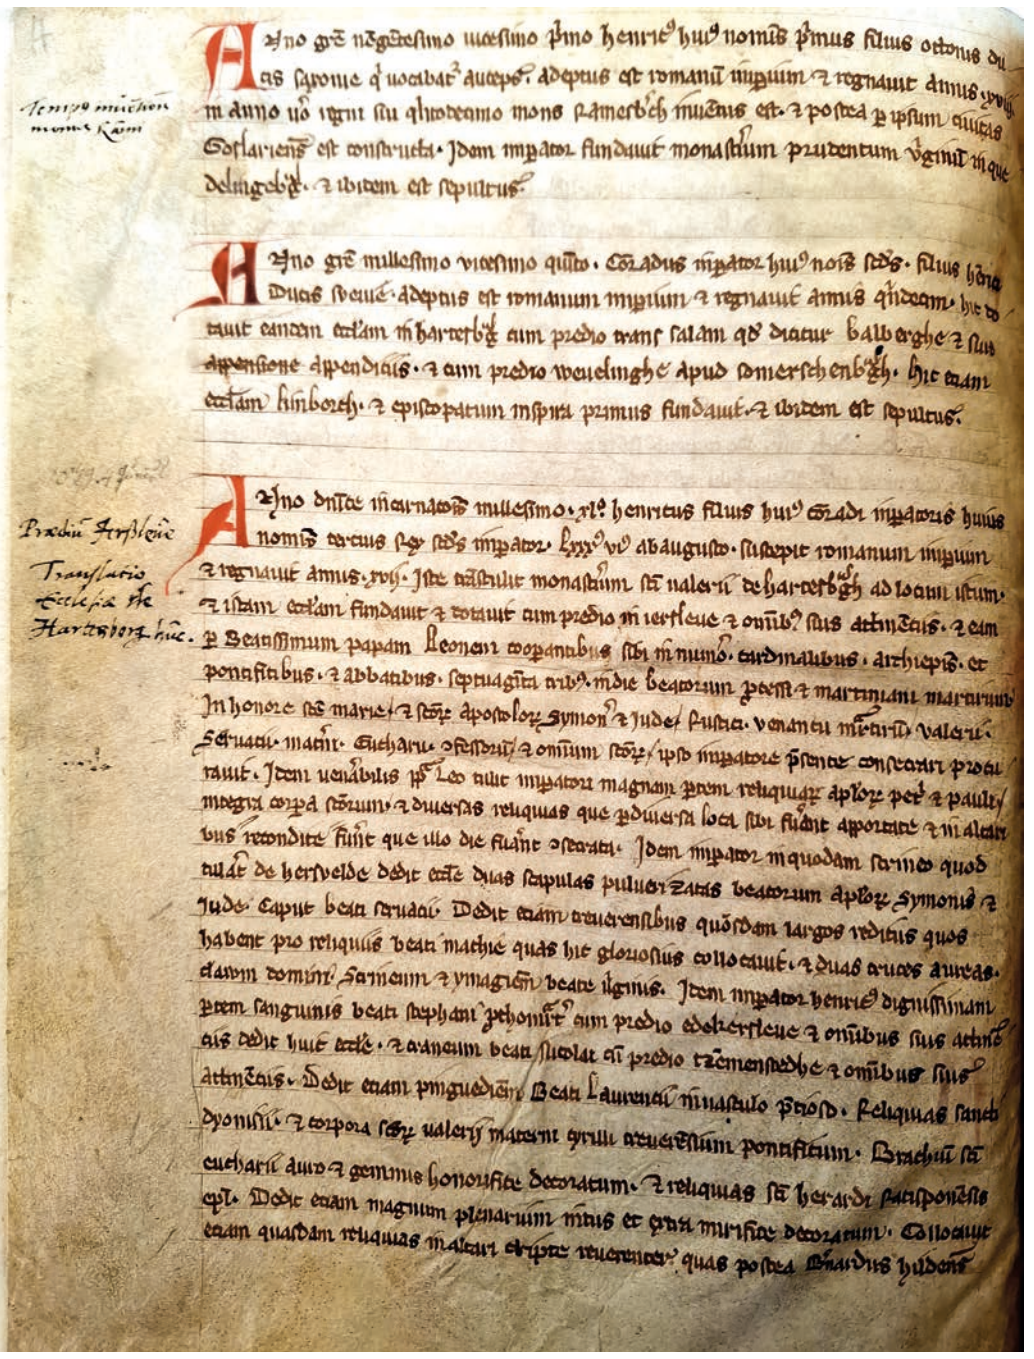 Anno grē nōgētesimo vicesimo p̄mo henricꝰ huiꝰ nomīs p̄mus filius ottonis du
cis saxonie q̄ vocabatᷣ auceps. adeptus est romanū imꝑium ⁊ regnauit annis xviij
Tempꝰ
montis Ram̄
in anno v̊o regni sui mons Ramesb̄ch inuētus est. ⁊ postea ꝑ ipsum ciuitas
Goslariens̄ est constructa. Idem imꝑator fundauit monast̄ium prudentum v̄ginū in que
delingeb̄ch. ⁊ ibidem est sepultus.
Anno grē millesimo vicesimo quīto. Cōradus imꝑator huiꝰ noīs scd̄s. filius
Ducis sveuie. adeptus est romanum imꝑium ⁊ regnauit annis q̄ndecim. hic do
tauit eandem eccl̄am in hartesb̄ch cum predio trans salam qd̄ dicitur balberghe ⁊ suis
appensione appendiciis. ⁊ cum predio weuelinghe apud somerschenb̄gh. hic etiam
eccl̄am limborch. ⁊ episcopatum inspira primus fundauit. ⁊ ibidem est sepultus.
Prædiū
Anno dn̄ice incarnatōīs millesimo. xlꝰ. henricus filius huiꝰ cōradi imꝑatoris huius
nomīs tercius rex scd̄s imꝑator. lxxxꝰ viꝰ ab augusto. suscepit romanum imꝑium
Translatio
Ecclesiæ
Hartesborg huc.
⁊ regnauit annis. xvij. Iste trāstulit monast̄ium sc̄i valerii de hartesb̄gh ad locum istum.
⁊ istam eccl̄am fundauit ⁊ dotauit cum predio in iersleue ⁊ om̄ibꝰ suis attinēciis. ⁊ eam
ꝑ Beatissimum papam Leonem cooꝑantibus sibi in num̄o. cardinalibus. archiepīs. et
pontificibus. ⁊ abbatibus. septuagīta tribꝰ. in die beatorum ꝓcessi ⁊ martiniani martirum
In honore scē marie. ⁊ scōꝝ apostoloꝝ symonꝭ ⁊ iude. Rustici. venancii m̄tirū. valerii.
Seruacii. mat̄ni. Eucharii. ꝯfessorū. ⁊ omnium scōꝝ. ipso imꝑatore p̄sente consecrari procu
rauit. Idem ven̄abilis pp̄a Leo tulit imꝑatori magnam ꝑtem reliquiaꝝ aplōꝝ pet̄ ⁊ pauli.
integra corꝑa scōrum. ⁊ diuersas reliquias que ꝑ diuersa loca sibi fuer̄nt apportate ⁊ in altari
bus recondite fuer̄nt que illo die fuer̄nt ꝯsecrata. Idem imꝑator in quodam scrineo quod
tulāt de hersvelde dedit eccl̄e duas scapulas pulverizatas beatorum aplōꝝ symonis ⁊
iude. Caput beati seruacii. Dedit etiam treuerensibus quōsdam largos reditus quos
habent pro reliquiis beati mathie quas hic gloriosius collocauit. ⁊ duas cruces aureas.
clauum domini. Scrineum ⁊ ymaginē beate v̄ginis. Idem imꝑator henricꝰ dignissimam
ꝑtem sanguinis beati stephani ꝓthom̄r̄ cum predio edekersleue ⁊ om̄ibus suis attinē
ciis dedit huic eccl̄e. ⁊ craneum beati nicolai cū predio ⁊ om̄ibus suis
attinēciis. Dedit etiam pinguedinē Beati Laurencii in vasculo p̄cioso. Reliquias sancti
dyonisii. ⁊ corpora scōꝝ valerij materni cyrilli treuerēsium pontificum. Brachiū sc̄i
eucharii auro ⁊ gemmis honorifice decoratum. ⁊ reliquias sc̄i herardi Ratisponēsis
epī. Dedit etiam magnum plenarium intus et extra mirifice decoratum. Collocauit
etiam quasdam reliquias in altari cripte reuerenter. quas postea B̄nardus hildens̄